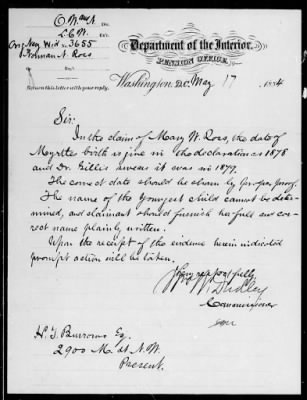 Department of the Interior,
PENSION OFFICE,
Washington, D.C., May 17, 1884
Orig Navy Wid. 3655
Norman N. Ross
Return this letter with your reply.
Sir:
In the claim of Mary W. Ross, the date of
Myrtle birth is give in the declaration as 1878
and Dr. Billies swears it was in 1877.
The correct date should be shown by proper proof.
The name of the youngest child cannot be deter-
mined, and claimant should furnish her full and cor-
rect name plainly written.
Upon the receipt of the evidence herein indicated
prompt action will be taken.
Very respectfully,
Dudley
Commissioner
H. J. Burrows Esq.
2900 M. St. N.W.
Present.